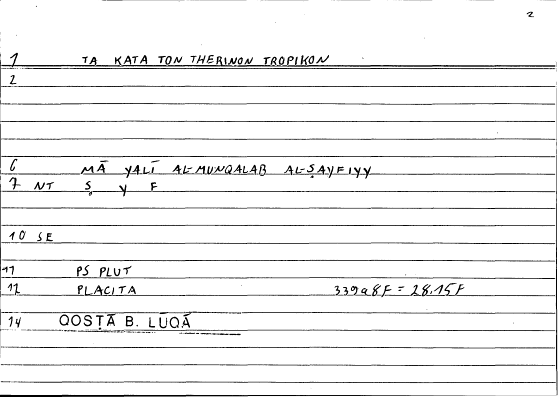 2
1 TA KATA TON THERINON TROPIKON
2
6 MĀ YALĪ AL-MUNQALAB AL-ṢAYFIYY
7 NT Ṣ Y F
10 SE
11 PS PLUT
12 PLACITA 339a8F = 28.15F
14 QOSṬĀ B. LŪQĀ